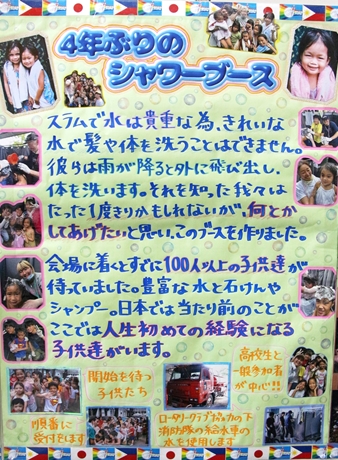 4年ぶりの
シャワーブース
スラムで水は貴重な為、きれいな
水で髪や体を洗うことはできません。
彼らは雨が降ると外に飛び出し、
体を洗います。それを知った我々は
たった1度きりかもしれないが、何とか
してあげたいと思い、このブースを作りました。
会場に着くとすでに100人以上の子供達が
待っていました。豊富な水と石けんや
シャンプー。日本では当たり前のことが
ここでは人生初めての経験になる
子供達がいます。
順番に
受付をします
開始を待つ
子供たち
ロータリークラブ協力の下
消防隊の給水車の
水を使用します
高校生と
一般参加者
が中心!!